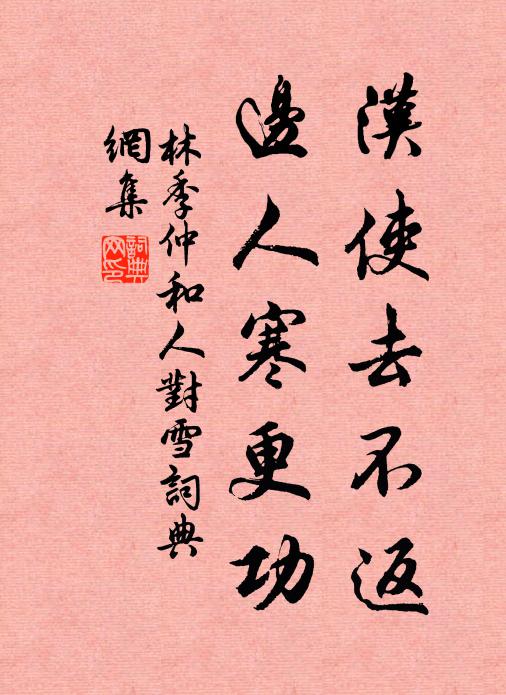 漢使去不返
邊人寒更功
林季仲和人對雪詞典
網集
詞典
网印